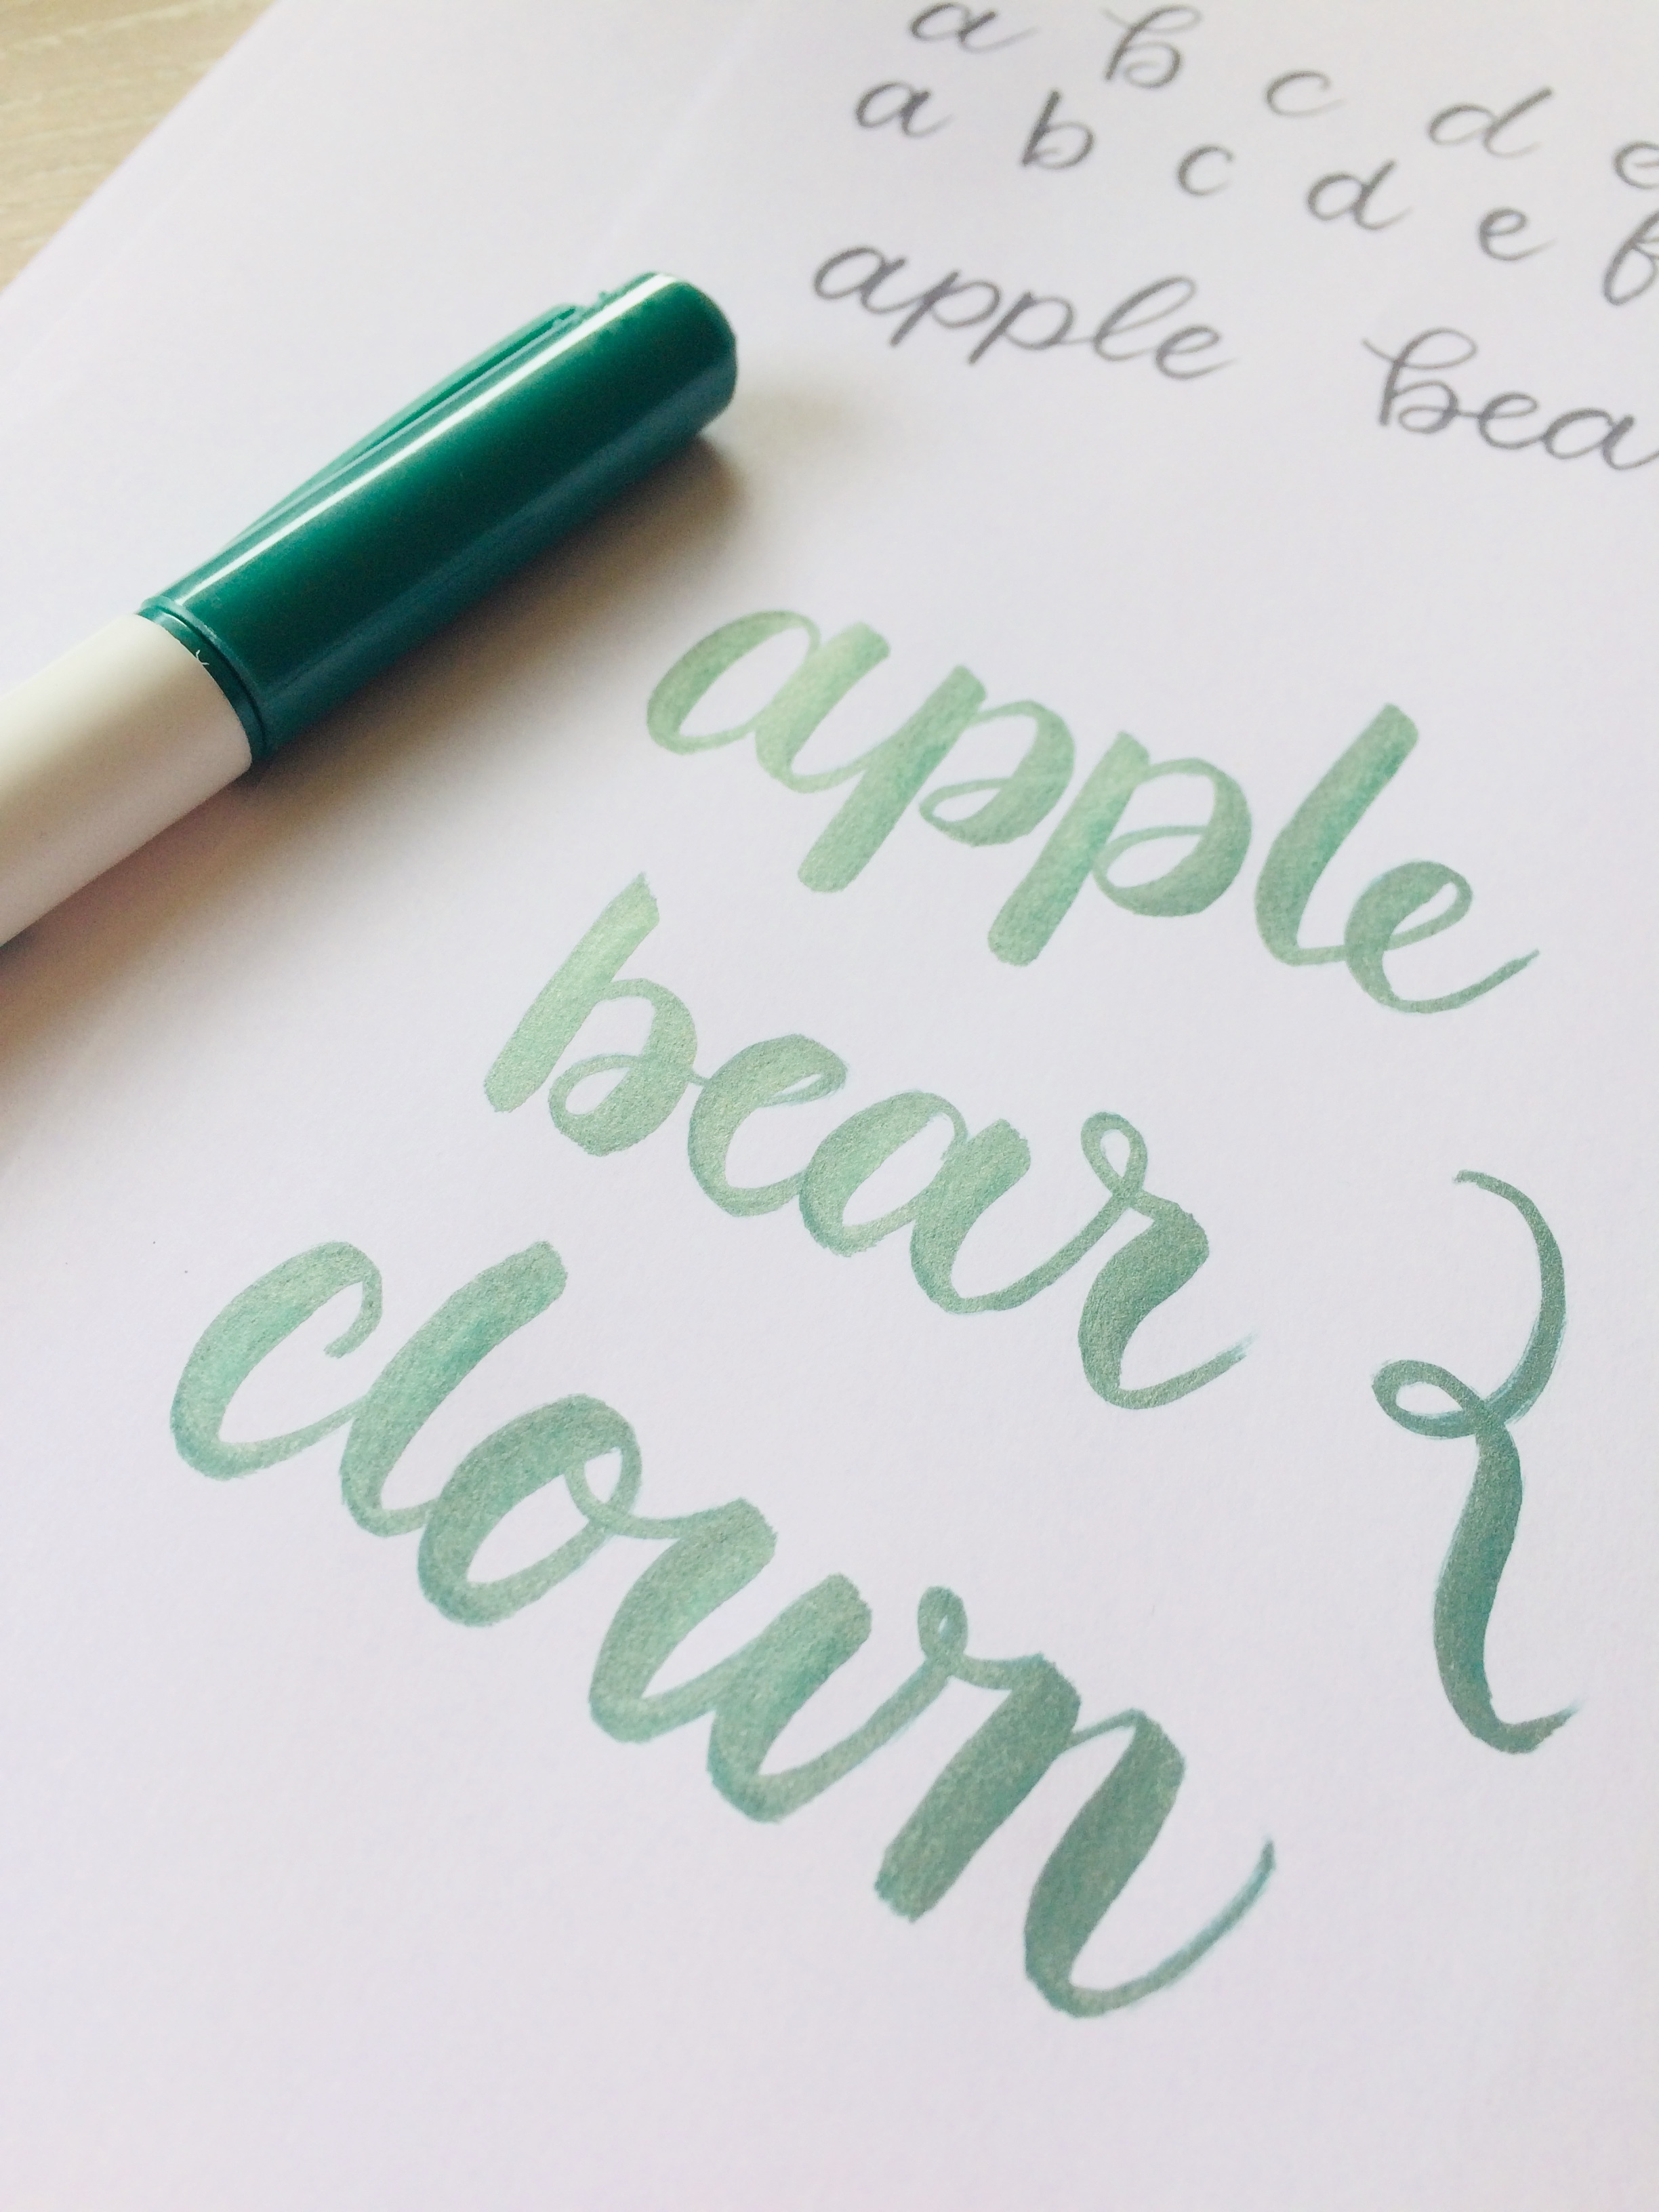 a b c d e
a b c d e f
apple bea
apple
bear
clown